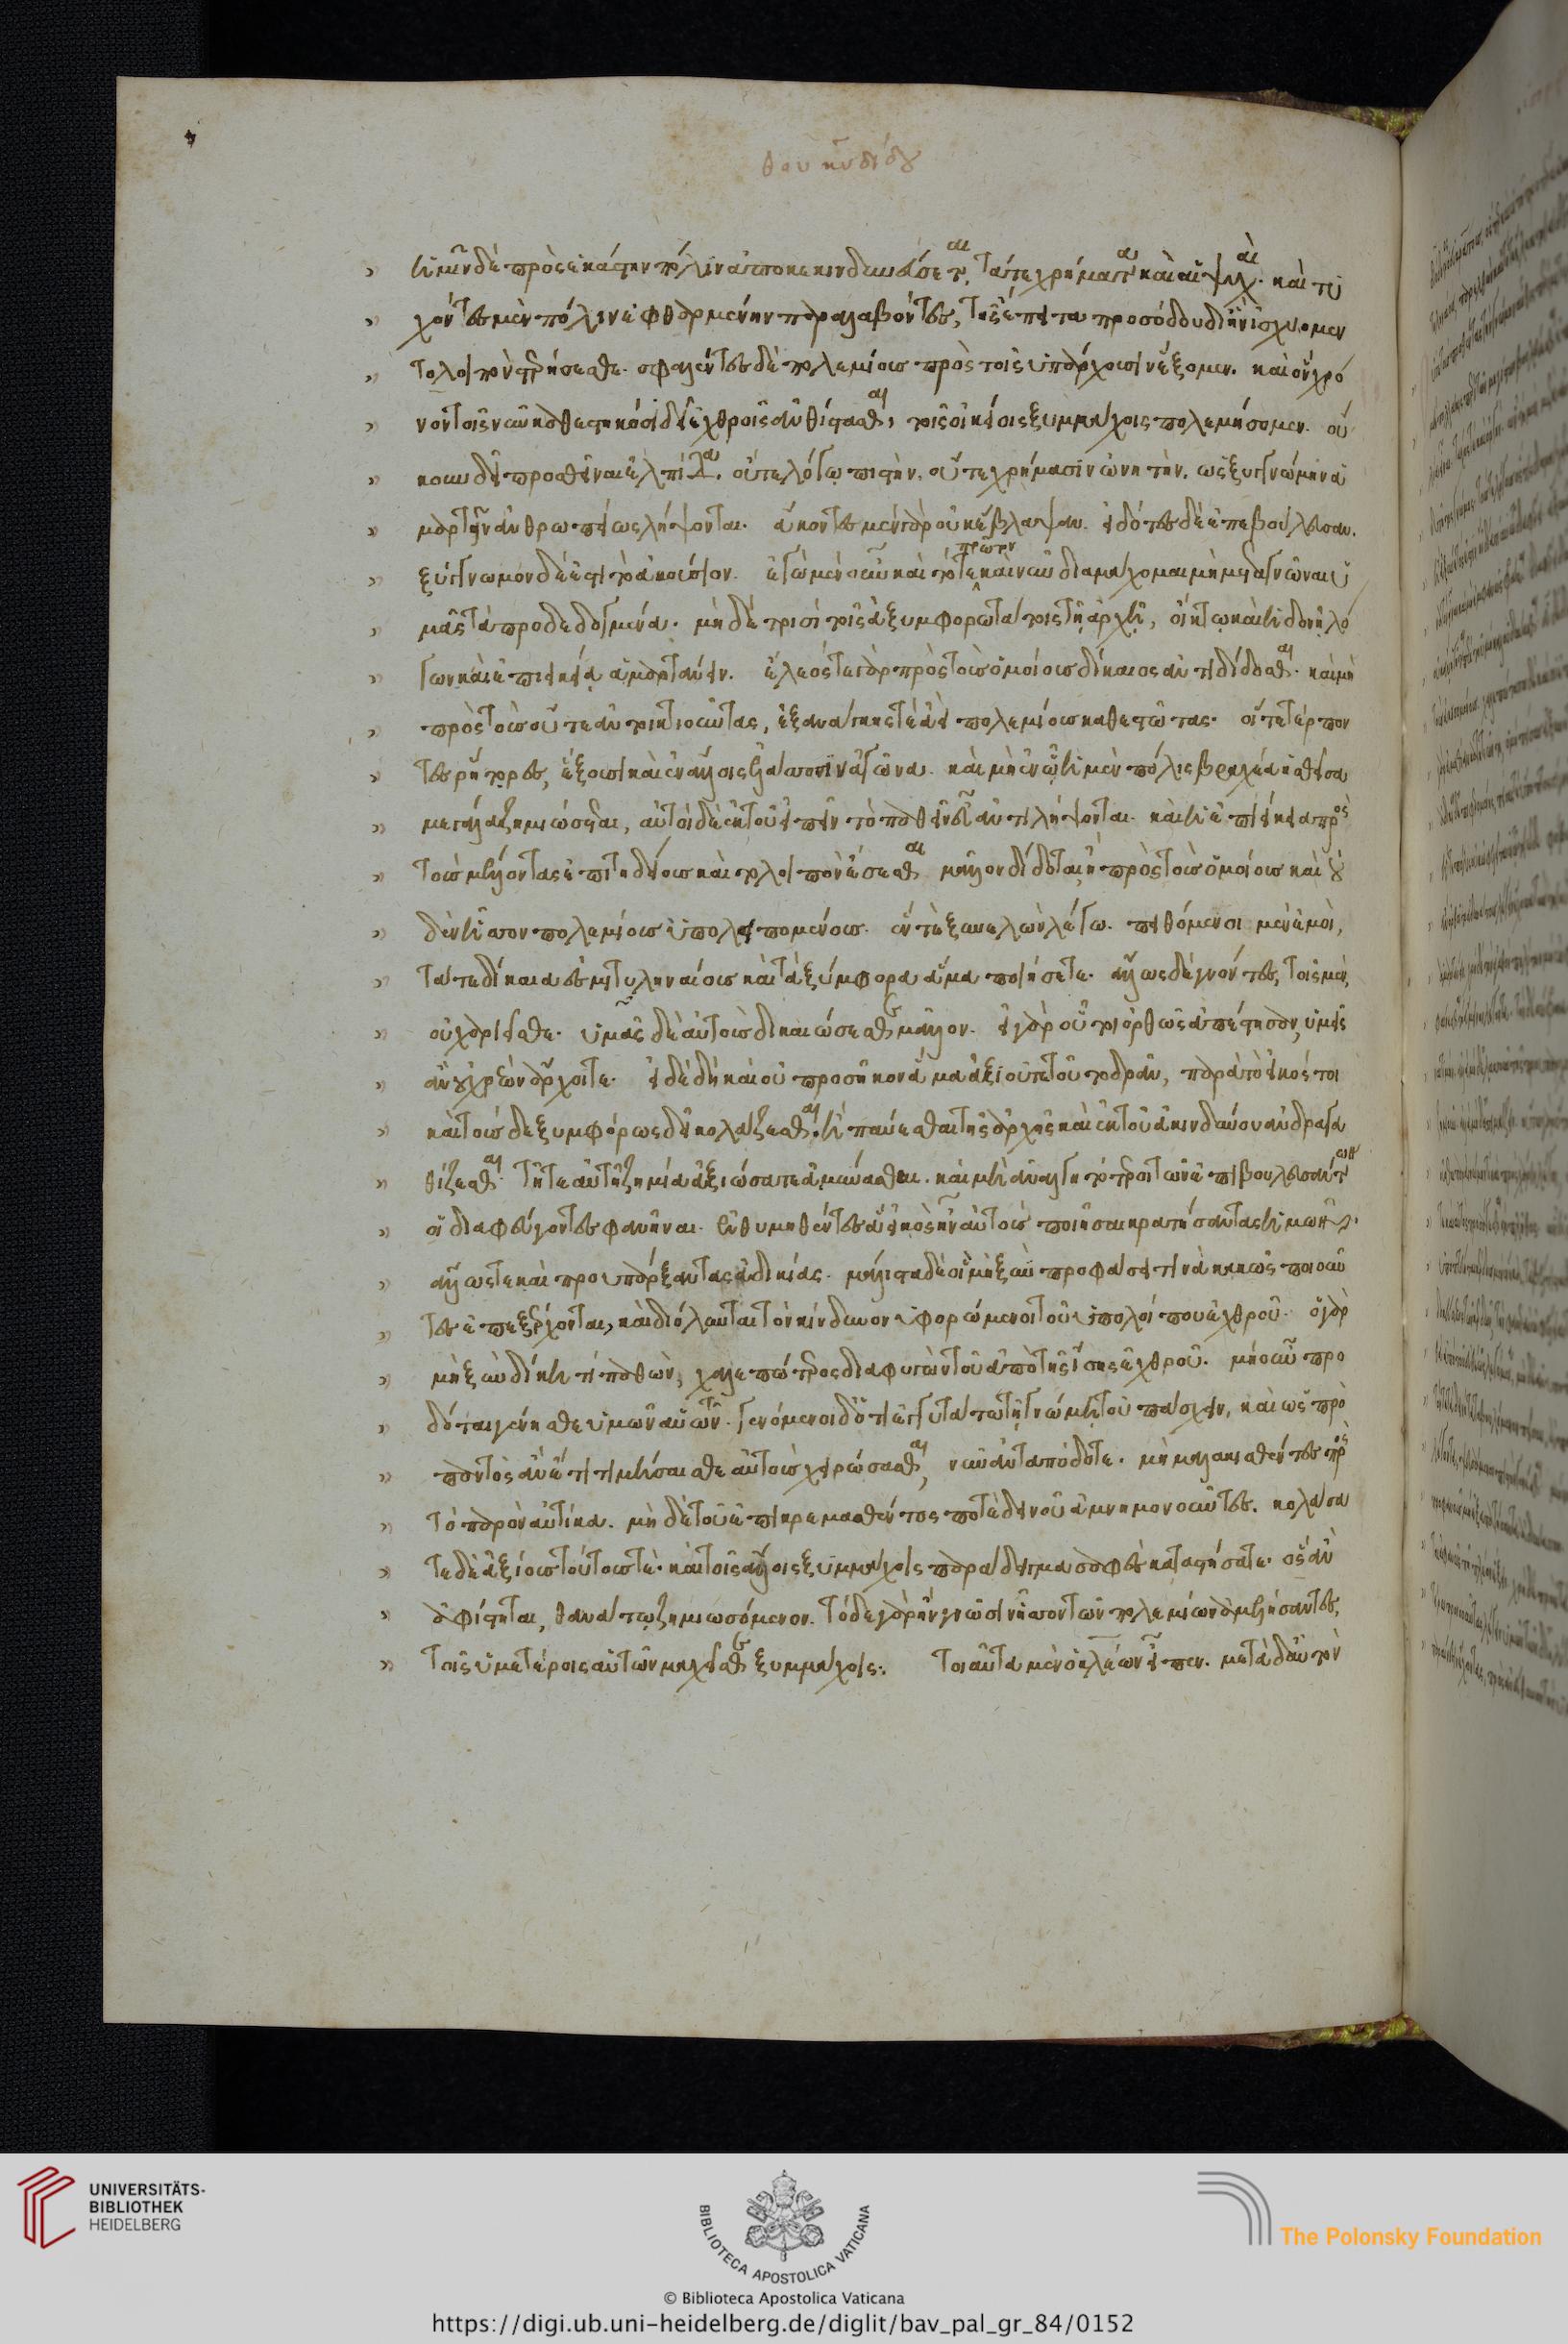 θουκυδίδου
ἡμῖν δὲ πρὸς ἑκάστην πόλιν ἀποκεκινδυνεύσεται, τά τε χρήματα καὶ αἱ ψυχαὶ. καὶ τυ
χόντες μὲν πόλιν ἐφθαρμένην παραλαβόντες, τῆς ἔπειτα προσόδου δι' ἣν ἰσχύομεν
τὸ λοιπὸν στερήσεσθε. σφαλέντες δὲ πολεμίους πρὸς τοῖς ὑπάρχουσιν ἕξομεν. καὶ ὃν χρό
νον τοῖς νῦν καθεστηκόσι δεῖ ἐχθροῖς ἀνθίστασθαι, τοῖς οἰκείοις ξυμμάχοις πολεμήσομεν. οὔ
κουν δεῖ προσθεῖναι ἐλπίδα. οὔτε λόγῳ πιστὴν. οὔτε χρήμασιν ὠνητὴν. ὡς ξυγγνώμην ἁ
μαρτεῖν ἀνθρωπείως λήψονται. ἄκοντες μὲν γὰρ οὐκ ἔβλαψαν. εἰδότες δὲ ἐπεβούλευσαν.
ξύγγνωμον δέ ἐστι τὸ ἀκούσιον. ἐγὼ μὲν οὖν καὶ τότε πρῶτον καὶ νῦν διαμάχομαι μὴ μεταγνῶναι ὑ
μᾶς τὰ προδεδογμένα. μὴ δὲ τρισὶ τοῖς ἀξυμφορωτάτοις τῇ ἀρχῇ, οἴκτῳ καὶ ἡδονῇ λό
γων καὶ ἐπιεικείᾳ ἁμαρτάνειν. ἔλεός τε γὰρ πρὸς τοὺς ὁμοίους δίκαιος ἀντιδίδοσθαι. καὶ μὴ
πρὸς τοὺς οὔτε ἀντοικτιοῦντας, ἐξ ἀνάγκης τε ἀεὶ πολεμίους καθεστῶτας. οἵ τε τέρπον
τες ῥήτορες, ἕξουσι καὶ ἐν ἄλλοις ἐλάσσοσιν ἀγῶνα. καὶ μὴ ἐν ᾧ ἡ μὲν πόλις βραχέα ἡσθεῖσα
μεγάλα ζημιώσεται, αὐτοὶ δὲ ἐκ τοῦ εἰπεῖν τὸ παθεῖν εὖ ἀντιλήψονται. καὶ ἡ ἐπιείκεια πρὸς
τοὺς μέλλοντας ἐπιτηδείους καὶ τὸ λοιπὸν ἔσεσθαι μᾶλλον δίδοται ἢ πρὸς τοὺς ὁμοίους καὶ οὐ
δὲν ἧσσον πολεμίους ὑπολειπομένους. ἕν τε ξυνελὼν λέγω. πειθόμενοι μὲν ἐμοὶ,
τά τε δίκαια ἐς μιτυληναίους καὶ τὰ ξύμφορα ἅμα ποιήσετε. ἄλλως δὲ γνόντες, τοῖς μὲν,
οὐ χαριεῖσθε. ὑμᾶς δὲ αὐτοὺς δικαιώσεσθε μᾶλλον. εἰ γὰρ οὗτοι ὀρθῶς ἀπέστησαν, ὑμεῖς
ἂν οὐ χρεὼν ἄρχοιτε. εἰ δὲ δὴ καὶ οὐ προσῆκον ἅμα ἀξιοῦτε τοῦτο δρᾶν, παρὰ τὸ εἰκός τοι
καὶ τούσδε ξυμφόρως δεῖ κολάζεσθαι. ἢ παύεσθαι τῆς ἀρχῆς καὶ ἐκ τοῦ ἀκινδύνου ἀνδραγα
θίζεσθαι. τῇ τε αὐτῇ ζημίᾳ ἀξιώσατε ἀμύνασθαι. καὶ μὴ ἀναλγητότεροι τῶν ἐπιβουλευσάντων
οἱ διαφεύγοντες φανῆναι. ἐνθυμηθέντες ἃ εἰκὸς ἦν αὐτοὺς ποιῆσαι κρατήσαντας ἡμῶν.
ἄλλως τε καὶ προυπάρξαντας ἀδικίας. μάλιστα δὲ οἱ μὴ ξὺν προφάσει τινὰ κακῶς ποιοῦν
τες ἐπεξέρχονται, καὶ διόλλυνται τὸν κίνδυνον ὑφορώμενοι τοῦ ὑπολοίπου ἐχθροῦ. ὁ γὰρ
μὴ ξὺν δίκῃ τι παθὼν, χαλεπώτερος διαφυγὼν τοῦ ἀπὸ τῆς ἴσης ἐχθροῦ. μὴ οὖν προ
δόται γένησθε ὑμῶν αὐτῶν. γενόμενοι δ' ὅτι ἐγγύτατα τῇ γνώμῃ τοῦ πάσχειν, καὶ ὡς πρὸ
παντὸς ἂν ἐτιμήσασθε αὐτοὺς χειρώσασθαι, νῦν ἀνταπόδοτε. μὴ μαλακισθέντες πρὸς
τὸ παρὸν αὐτίκα. μὴ δὲ τοῦ ἐπικρεμασθέντος ποτὲ δεινοῦ ἀμνημονοῦντες. κολάσα
τε δὲ ἀξίως τούτους τε. καὶ τοῖς ἄλλοις ξυμμάχοις παράδειγμα σαφὲς καταστήσατε. ὃς ἂν
ἀφίστηται, θανάτῳ ζημιωσόμενον. τόδε γὰρ ἢν γνῶσιν ἧσσον τῶν πολεμίων ἀμελήσαντες,
τοῖς ὑμετέροις αὐτῶν μαχεῖσθε ξυμμάχοις. τοιαῦτα μὲν ὁ κλέων εἶπεν. μετὰ δ' αὐτὸν
UNIVERSITÄTS-
BIBLIOTHEK
HEIDELBERG
BIBLIOTECA APOSTOLICA VATICANA
The Polonsky Foundation
© Biblioteca Apostolica Vaticana
https://digi.ub.uni-heidelberg.de/diglit/bav_pal_gr_84/0152